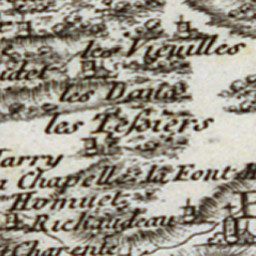 les Vieuilles
udet
les Dauis
les Teßiers
Tarry
Chapelle la Font
Homuet
Richaudeau
Charente